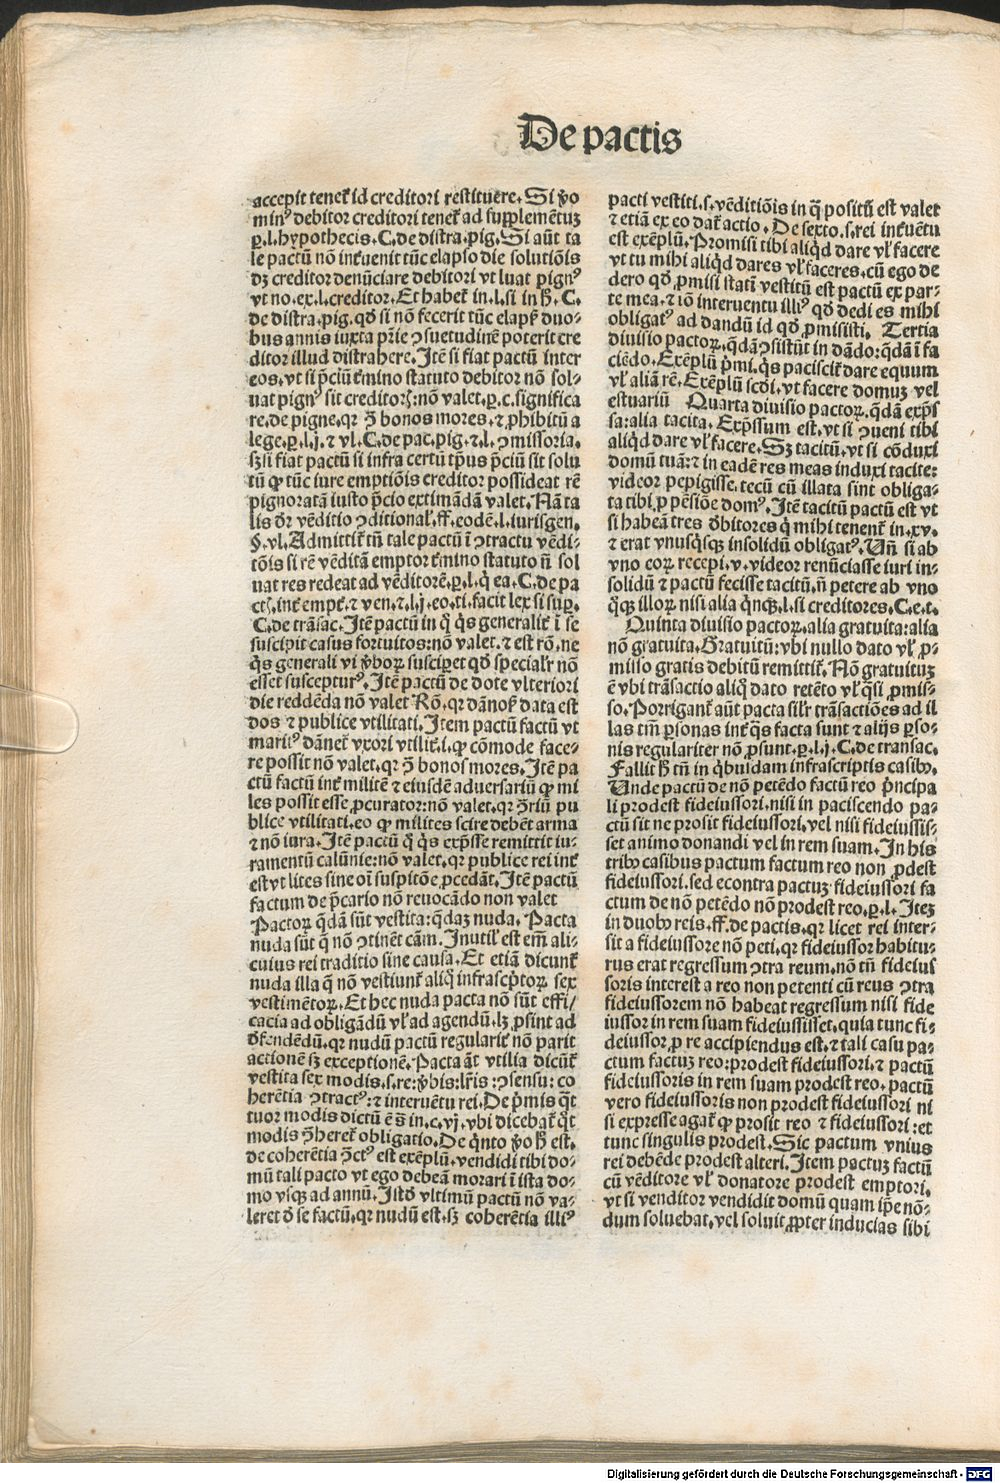 De pactis
accepit teneť id creditori restituere. Si v̾o
minꝰ debitor creditori teneť ad supplementuȝ
ꝑ.l.hypothecis.C.de distra.pig. Si aūt ta
le pactū nō int̾uenit tūc elapso die solutiōis
dȝ creditor denūciare debitori vt luat pignꝰ
vt no.ex.l.creditor. Et habeť in.l.si in h̄.C.
de distra.pig. qd̾ si nō fecerit tūc elapẜ duo⸗
bus annis iuxta pr̄ie ↄsuetudinē poterit cre
ditor illud distrahere. Itē si fiat pactū inter
eos. vt si p̄ciū t̾mino statuto debitor nō sol⸗
uat pignꝰ sit creditorꝭ: nō valet. ꝑ.c.significa
re.de pigne. qr ↄ̄ bonos mores. ⁊ ꝓhibitū a
lege.ꝑ.l.j. ⁊ vl.C.de pac.pig. ⁊.l. ↄmissoria.
sȝ si fiat pactū si infra certū tꝑus p̄ciū sit solu
tū ꝙ tūc iure emptiōis creditor possideat rē
pignoratā iusto p̄cio extimādā valet. Nā ta
lis dr̄ vēditio ↄditionał.ff.eodē.l.iurisgen.
§.vl. Admittiť tn̄ tale pactū ī ↄtractu vēdi⸗
tōis si rē vēditā emptor t̾mino statuto n̄ sol
uat res redeat ad vēditorē.ꝑ.l.q̇ ea.C.de pa
ctꝭ.int̾ empť. ⁊ ven. ⁊.l.j.eo.ti.facit lex si suꝑ.
C.de trāsac. Itē pactū in q̊ q̇s generaliť ī se
suscipit casus fortuitos: nō valet. ⁊ est rō. ne
q̇s generali vi v̾boꝝ susciꝑet qd̾ specialr̄ nō
esset suscepturꝰ. Itē pactū de dote vlteriori
die reddēda nō valet Rō. qr dānoẜ data est
dos ⁊ publice vtilitati. Item pactū factū vt
maritꝰ dāneť vxori vtiliť.i. ꝙ cōmode face⸗
re possit nō valet. qr ↄ̄ bonos mores. Itē pa
ctū factū int̾ militē ⁊ eiusdē aduersariū ꝙ mi
les possit esse ꝓcurator: nō valet. qr ↄ̄riū pu
blice vtilitati. eo ꝙ milites scire debēt arma
⁊ nō iura. Itē pactū q̊ q̇s exp̄sse remittit iu⸗
ramentū calūnie: nō valet. qr publice rei int̾
est vt lites sine oī suspitōe ꝓcedāt. Itē pactū
factum de p̄cario nō reuocādo non valet
Pactoꝝ q̄dā sūt vestita: q̄daȝ nuda. Pacta
nuda sūt q̄ nō ↄtinēt cām. Inutił est em̄ ali⸗
cuius rei traditio sine causa. Et etiā dicunť
nuda illa q̄ nō vestiunť aliq̊ infrascp̄toꝝ sex
vestimētoꝝ. Et hec nuda pacta nō sūt effi/
cacia ad obligādū vł ad agendū. lȝ ꝓsint ad
d̾fendēdū. qr nudū pactū regulariť nō parit
actionē sȝ exceptionē. Pacta āt vtilia dicūť
vestita sex modis.s.re: v̾bis: lr̄is: ↄsensu: co
herētia ↄtractꝰ: ⁊ interuētu rei. De p̄mis q̄t
tuor modis dictū ē s̄ in.c.vj. vbi dicebať q̊t
modis ↄ̄hereť obligatio. De q̇nto v̾o h̄ est.
de coherētia ↄ̄ctꝰ est exēplū. vendidi tibi do⸗
mū tali pacto vt ego debeā morari ī ista do⸗
mo vsqȝ ad annū. Istd̾ vltimū pactū nō va⸗
leret d̾ se factū. qr nudū est. sȝ coherētia illiꝰ
pacti vestiti.s.vēditiōis in q̄ positū est valet
⁊ etiā ex eo dať actio. De sexto.s.rei int̾uētu
est exēplū. Promisi tibi aliq̇d dare vł facere
vt tu mihi aliq̇d dares vł faceres. cū ego de
dero qd̾ ꝓmisi statī vestitū est pactū ex par⸗
te mea. ⁊ iō interuentu illiꝰ qd̾ dedi es mihi
obligatꝰ ad dandū id qd̾ ꝓmisisti. Tertia
diuisio pactoꝝ. q̄dā ↄsistūt in dādo: q̄dā ī fa
ciēdo. Exēplū p̄mi. q̇s paciscit̾ dare equum
vł aliā rē. Exēplū scd̾i. vt facere domuȝ vel
estuariū Quarta diuisio pactoꝝ. q̄dā exp̄s
sa: alia tacita. Exp̄ssum est. vt si ↄueni tibi
aliq̇d dare vł facere. Sȝ tacitū. vt si cōduxi
domū tuā: ⁊ in eadē res meas induxi tacite:
videor pepigisse. tecū cū illata sint obliga⸗
ta tibi ꝓ pēsiōe domꝰ. Itē tacitū pactū est vt
si habeā tres d̾bitores q̇ mihi tenenť in.xv.
⁊ erat vnusq̇sqȝ insolidū obligatꝰ. Vn̄ si ab
vno eoꝝ recepi.v.videor renūciasse iuri in⸗
solidū ⁊ pactū fecisse tacitū. n̄ petere ab vno
q̊qȝ illoꝝ nisi alia q̇nqȝ.l.si creditores.C.e.t.
Quinta diuisio pactoꝝ. alia gratuita: alia
nō gratuita. Gratuitū: vbi nullo dato vł ꝓ⸗
misso gratis debitū remittiť. Nō gratuituȝ
ē vbi trāsactio aliq̊ dato retēto vł q̄si ꝓmis⸗
so. Porriganť aūt pacta silr̄ trāsactiōes ad il
las tm̄ ꝑsonas int̾ q̄s facta sunt ⁊ alijs ꝑso⸗
nis regulariter nō ꝓsunt.ꝑ.l.j.C.de transac.
Fallit h̄ tn̄ in q̇buidam infrascriptis casibꝰ.
Unde pactū de nō petēdo factū reo p̄ncipa
li prodest fideiussori. nisi in paciscendo pa⸗
ctū sit ne prosit fideiussori. vel nisi fideiussis⸗
set animo donandi vel in rem suam. In his
tribꝰ casibus pactum factum reo non ꝓdest
fideiussori. sed econtra pactuȝ fideiussori fa
ctum de nō petēdo nō prodest reo.ꝑ.l. Iteȝ
in duobꝰ reis.ff.de pactis. qr licet rei inter⸗
sit a fideiussore nō peti. qr fideiussor habitu⸗
rus erat regressum ↄtra reum. nō tn̄ fideius
soris interest a reo non petenti cū reus ↄtra
fideiussorem nō habeat regressum nisi fide
iussor in rem suam fideiussisset. quia tunc fi⸗
deiussor ꝓ re accipiendus est. ⁊ tali casu pa⸗
ctum factuȝ reo: prodest fideiussori. ⁊ pactū
fideiussoris in rem suam prodest reo. pactū
vero fideiussoris non prodest fideiussori ni
si expresse agať ꝙ prosit reo ⁊ fideiussori: et
tunc singulis prodest. Sic pactum vnius
rei debēde prodest alteri. Item pactuȝ factū
cū vēditore vł donatore prodest emptori.
vt si venditor vendidit domū quam ip̄e nō⸗
dum soluebat. vel soluit ꝓpter inducias sibi
Digitalisierung gefördert durch die Deutsche Forschungsgemeinschaft - DFG